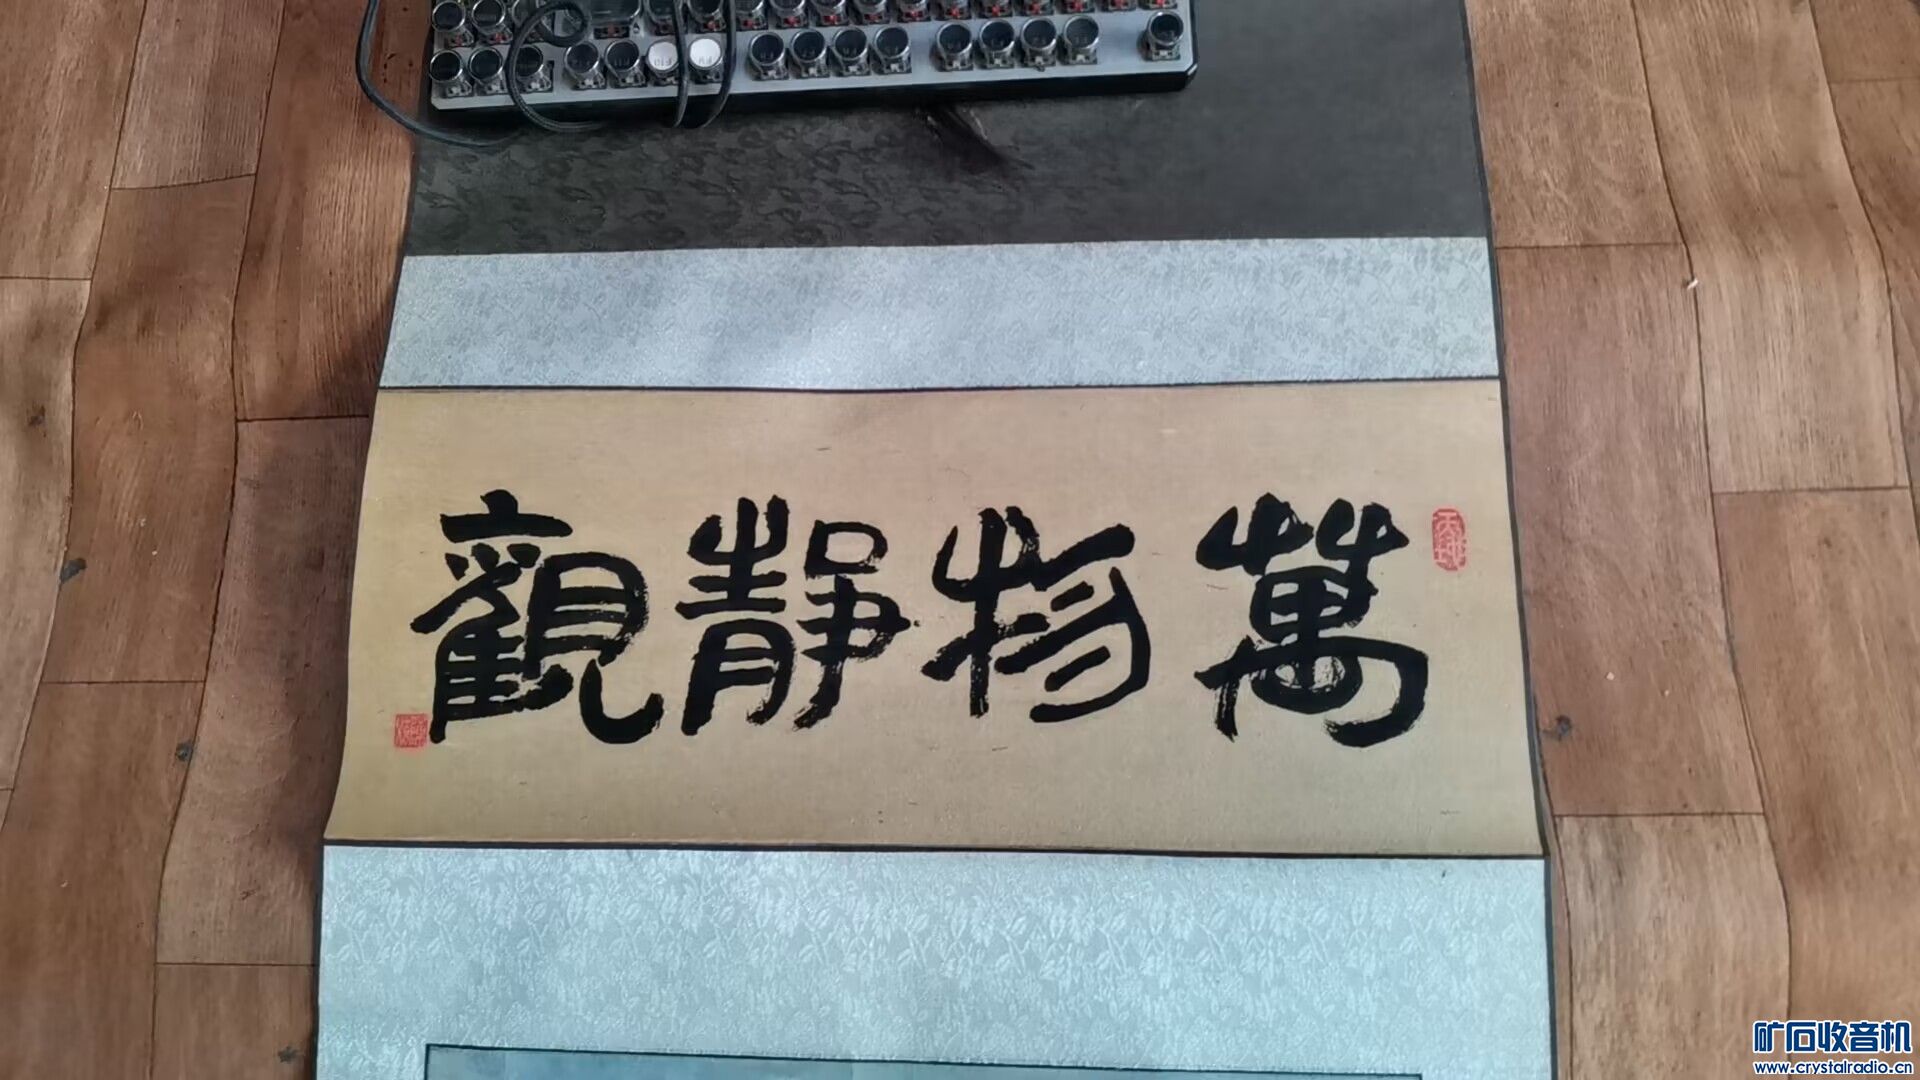 萬物靜觀
矿石收音机
www.crystalradio.cn